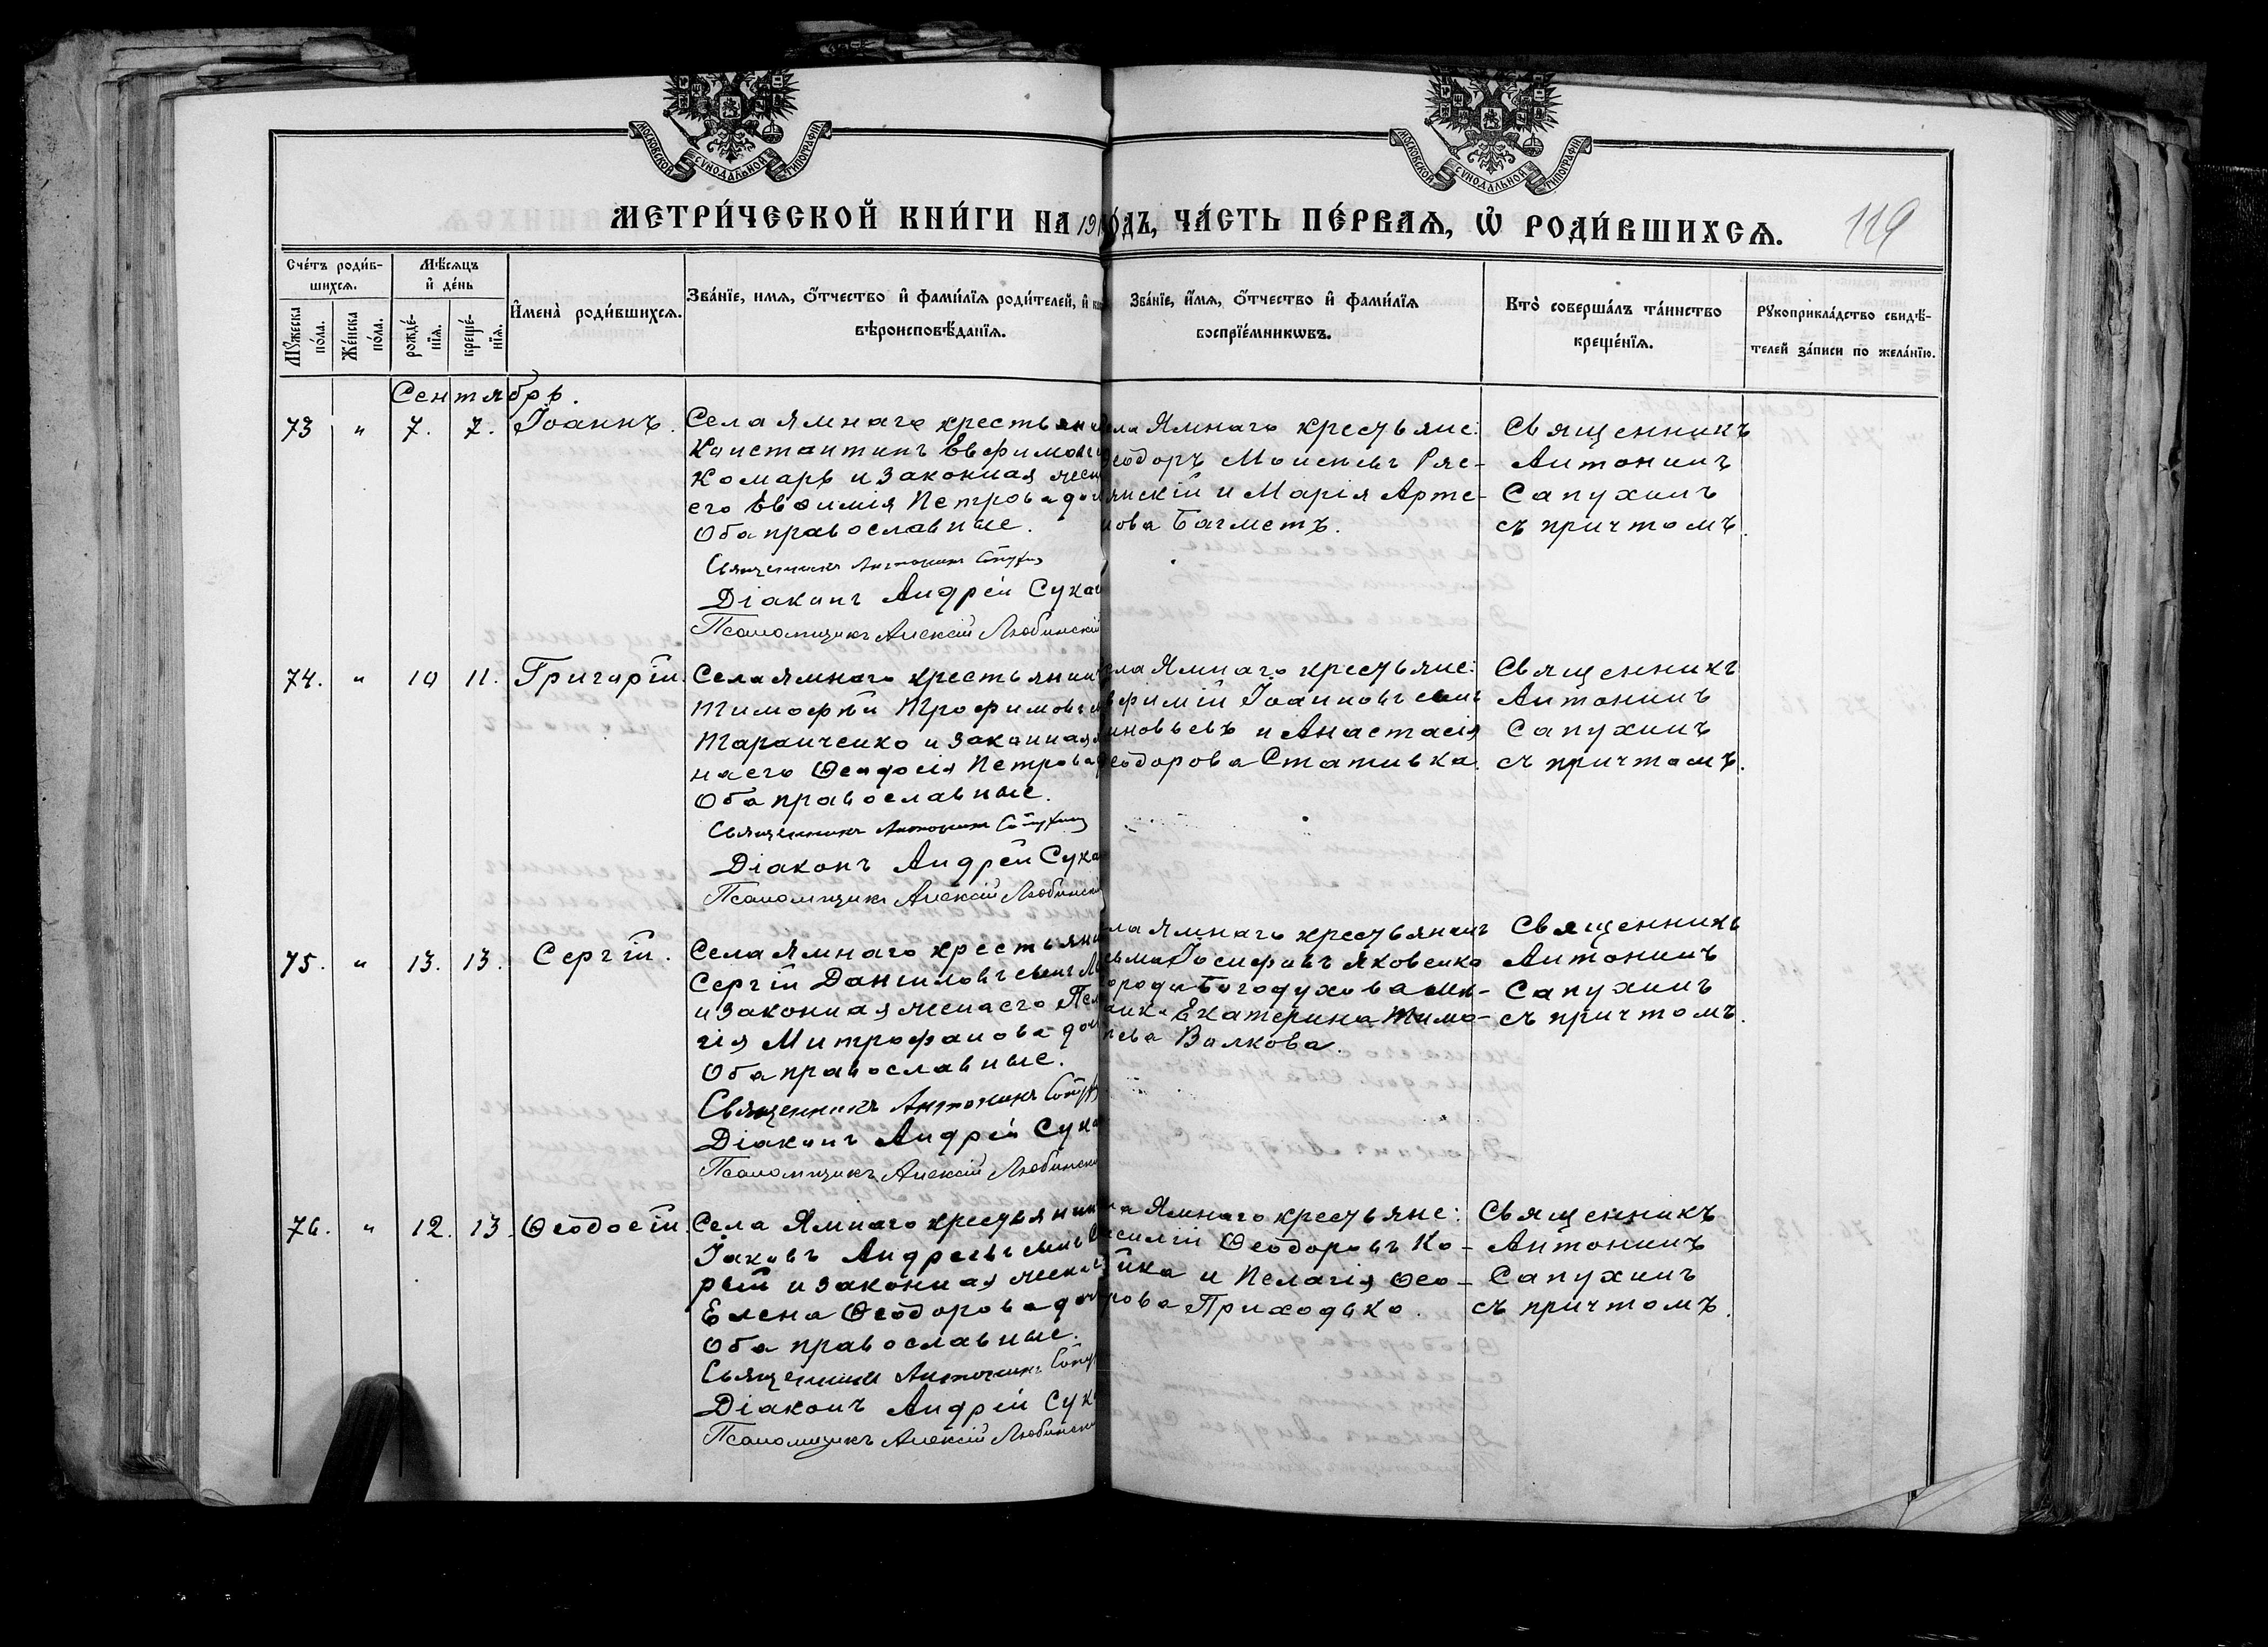 МОСКОВСКОЙ СУНОДАЛЬНОЙ ТИПОГРАФІИ
МОСКОВСКОЙ СУНОДАЛЬНОЙ ТИПОГРАФІИ
МЕТРИ́ЧЕСКОЙ КНИ́ГИ НА 19 ГО́ДЪ, ЧА́СТЬ ПЕ́РВАѦ, Ѡ҆ РОДИ́ВШИХСѦ.
119
Сче́тъ роди́вшихсѧ.
Мꙋ́жеска по́ла.
Же́нска по́ла.
Мѣ́сѧцъ и҆ де́нь
рожде́нїѧ.
креще́нїѧ.
И҆мена̀ роди́вшихсѧ.
Зва́нїе, имѧ, ѻ҆́тчество и҆ фами́лїѧ роди́телей, и҆
вѣроисповѣ́данїѧ.
Зва́нїе, и҆́мѧ, ѻ҆́тчество и҆ фами́лїѧ
воспрїе́мникѡвъ.
Кто̀ соверша́лъ та́инство
креще́нїѧ.
Рꙋкоприкла́дство свидѣ́-
телей за́писи по жела́нїю.
Сентябрь.
73 " 7. 7. Іоаннъ.
Села Ямнаго крестьянин
Константинъ Евфимовъ
Комарь и законная жен
его Евѳимія Петрова доч
Оба православные.
Священникъ Антонинъ Сапухин
Діаконъ Андрей Сукач
Псаломщикъ Алексій Любинскій
ела Ямнаго крестьяне:
Ѳеодоръ Моисеевъ Ряс-
янскій и Марія Арте-
мова Багметъ.
Священникъ
Антонинъ
Сапухинъ
съ причтомъ.
74. " 10 11. Григорій.
Села Ямнаго крестьянинъ
Тимофѣй Трофимовъ
Таранченко и законная
на его Ѳеодосія Петрова
Оба православные.
Священникъ Антонинъ Сапухин
Діаконъ Андрей Сука
Псаломщикъ Алексій Любинскій
ела Ямнаго крестьяне:
Евфимій Іоанновъ
новьевъ и Анастасія
Ѳеодорова Стативка.
Священникъ
Антонинъ
Сапухинъ
съ причтомъ.
75. " 13. 13. Сергій.
Села Ямнаго крестьянин
Сергій Даниловъ сынъ
и законная жена его Пела
гія Митрофанова доч
Оба православные.
Священникъ Антонинъ Сапух
Діаконъ Андрей Сука
Псаломщикъ Алексій Любински
ла Ямнаго крестьянинъ
зьма Іосифовъ Яковенко
города Богодухова мѣ-
анка Екатерина Тимо-
Волкова.
Священникъ
Антонинъ
Сапухинъ
съ причтомъ.
76. " 12. 13. Ѳеодосій.
Села Ямнаго крестьянин
Іаковъ Андреевъ сынъ
рый и законная жена
Елена Ѳеодорова доч
Оба православные.
Священникъ Антонинъ Сапух
Діаконъ Андрей Сук
Псаломщикъ Алексій Любински
ла Ямнаго крестьяне:
асилій Ѳеодоровъ Ко-
йка и Пелагія Ѳео-
рова Приходько.
Священникъ
Антонинъ
Сапухинъ
съ причтомъ.